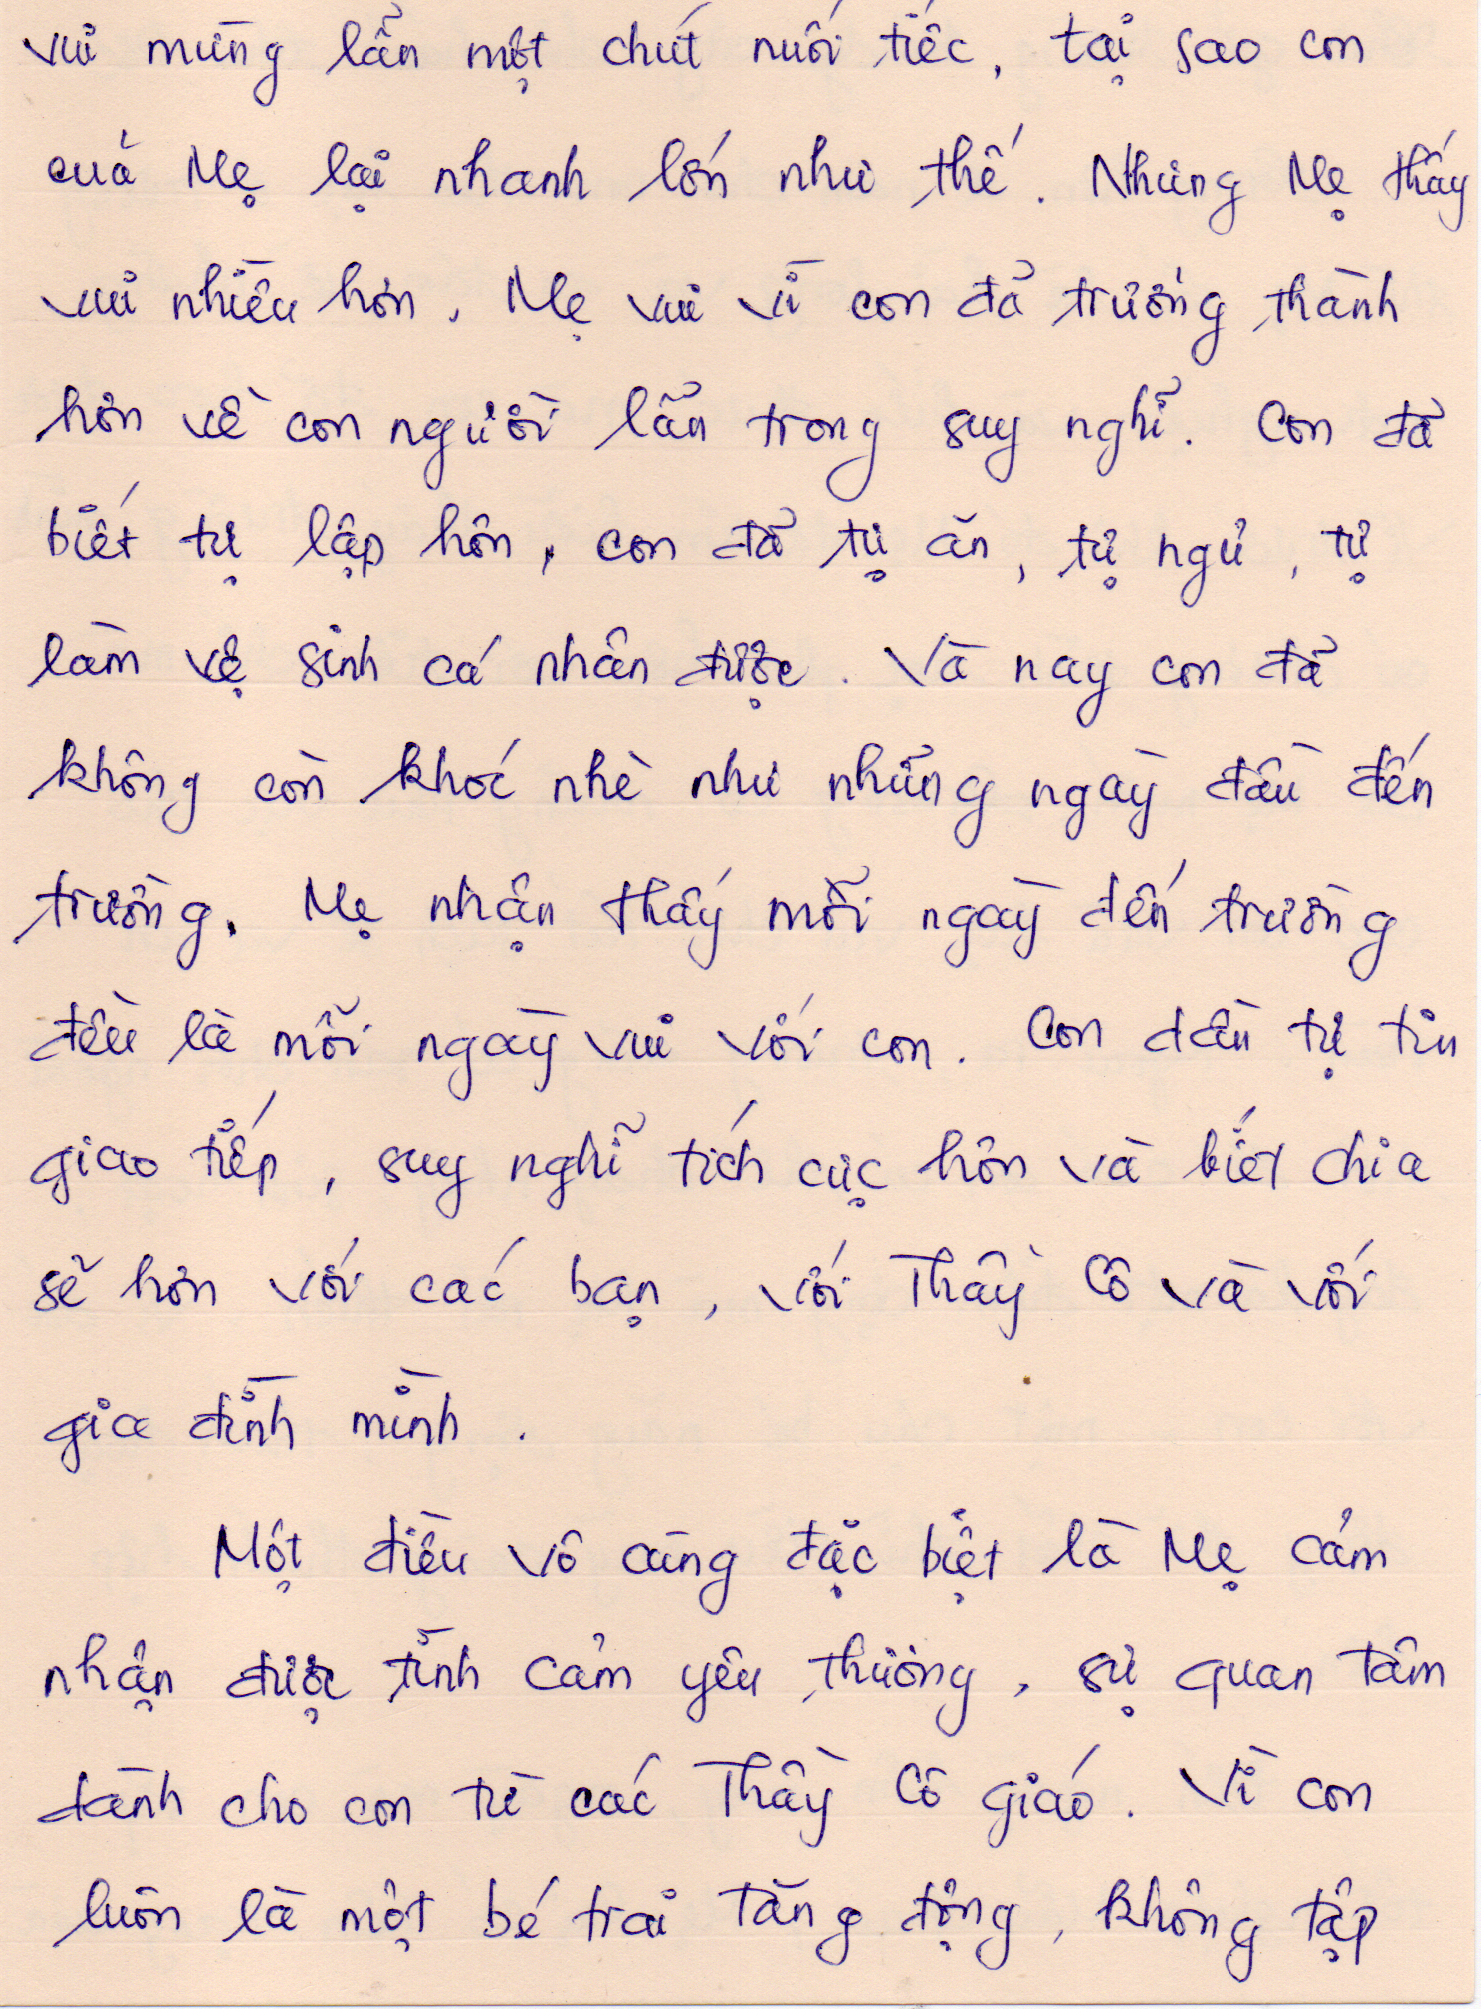 vui mừng lẫn một chút nuối tiếc, tại sao con
của Mẹ lại nhanh lớn như thế. Nhưng Mẹ thấy
vui nhiều hơn. Mẹ vui vì con đã trưởng thành
hơn về con người lẫn trong suy nghĩ. Con đã
biết tự lập hơn, con đã tự ăn, tự ngủ, tự
làm vệ sinh cá nhân được. Và nay con đã
không còn khóc nhè như những ngày đầu đến
trường. Mẹ nhận thấy mỗi ngày đến trường
đều là mỗi ngày vui với con. Con dần tự tin
giao tiếp, suy nghĩ tích cực hơn và biết chia
sẽ hơn với các bạn, với Thầy Cô và với
gia đình mình.
Một điều vô cùng đặc biệt là Mẹ cảm
nhận được tình cảm yêu thương, sự quan tâm
dành cho con từ các Thầy Cô giáo. Vì con
luôn là một bé trai tăng động, không tập